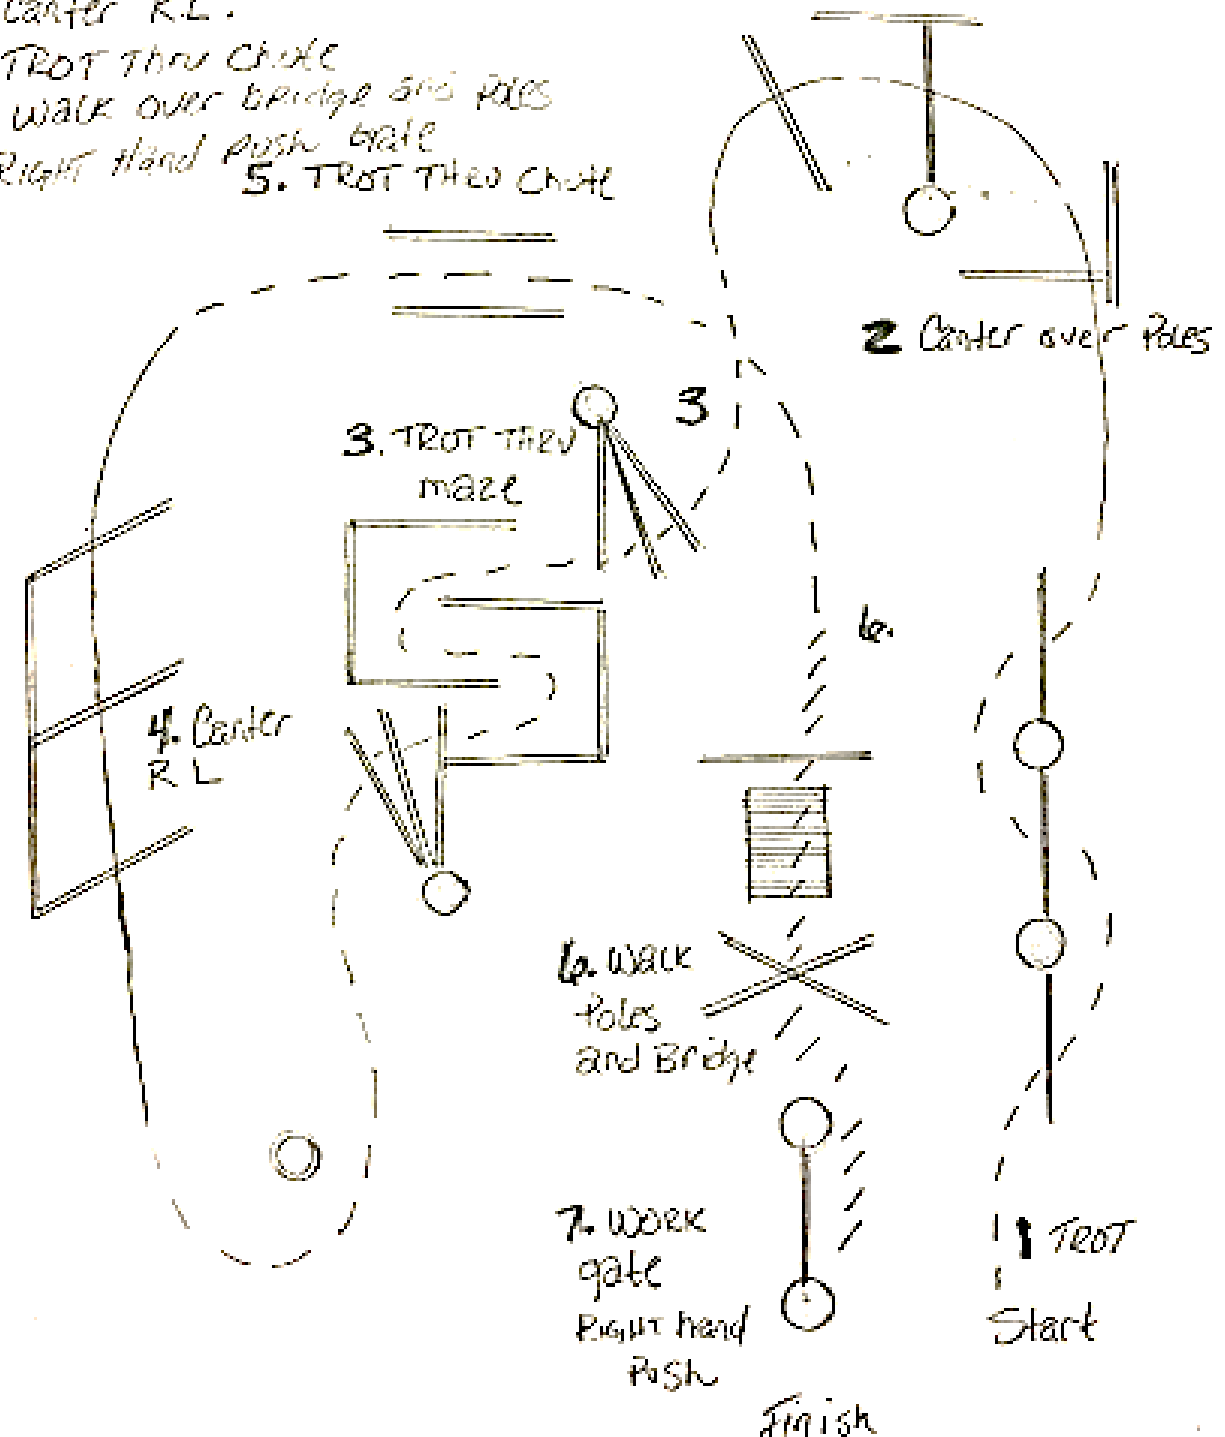 Canter R.L.
TROT Thru Chute
Walk over bridge and Poles
RIGHT Hand Push Gate
5. TROT THRU Chute
2 Canter over Poles
3
3. TROT THRU
maze
6.
4. Canter
R L
6. Walk
Poles
and Bridge
7. WORK
gate
RIGHT hand
Push
1 TROT
Start
Finish